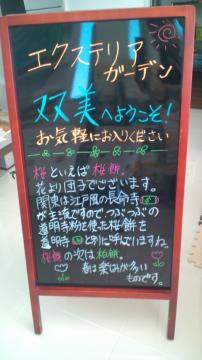 エクステリア
ガーデン
双美へようこそ!
お気軽にお入りください
桜といえば桜餅。
花より団子でございます。
関東は江戸風の長命寺
が主流ですので、つぶつぶの
道明寺粉を使った桜餅を
道明寺 と別に呼んでいますね。
桜餅の次は柏餅。
春は楽しみが多い
ものです。